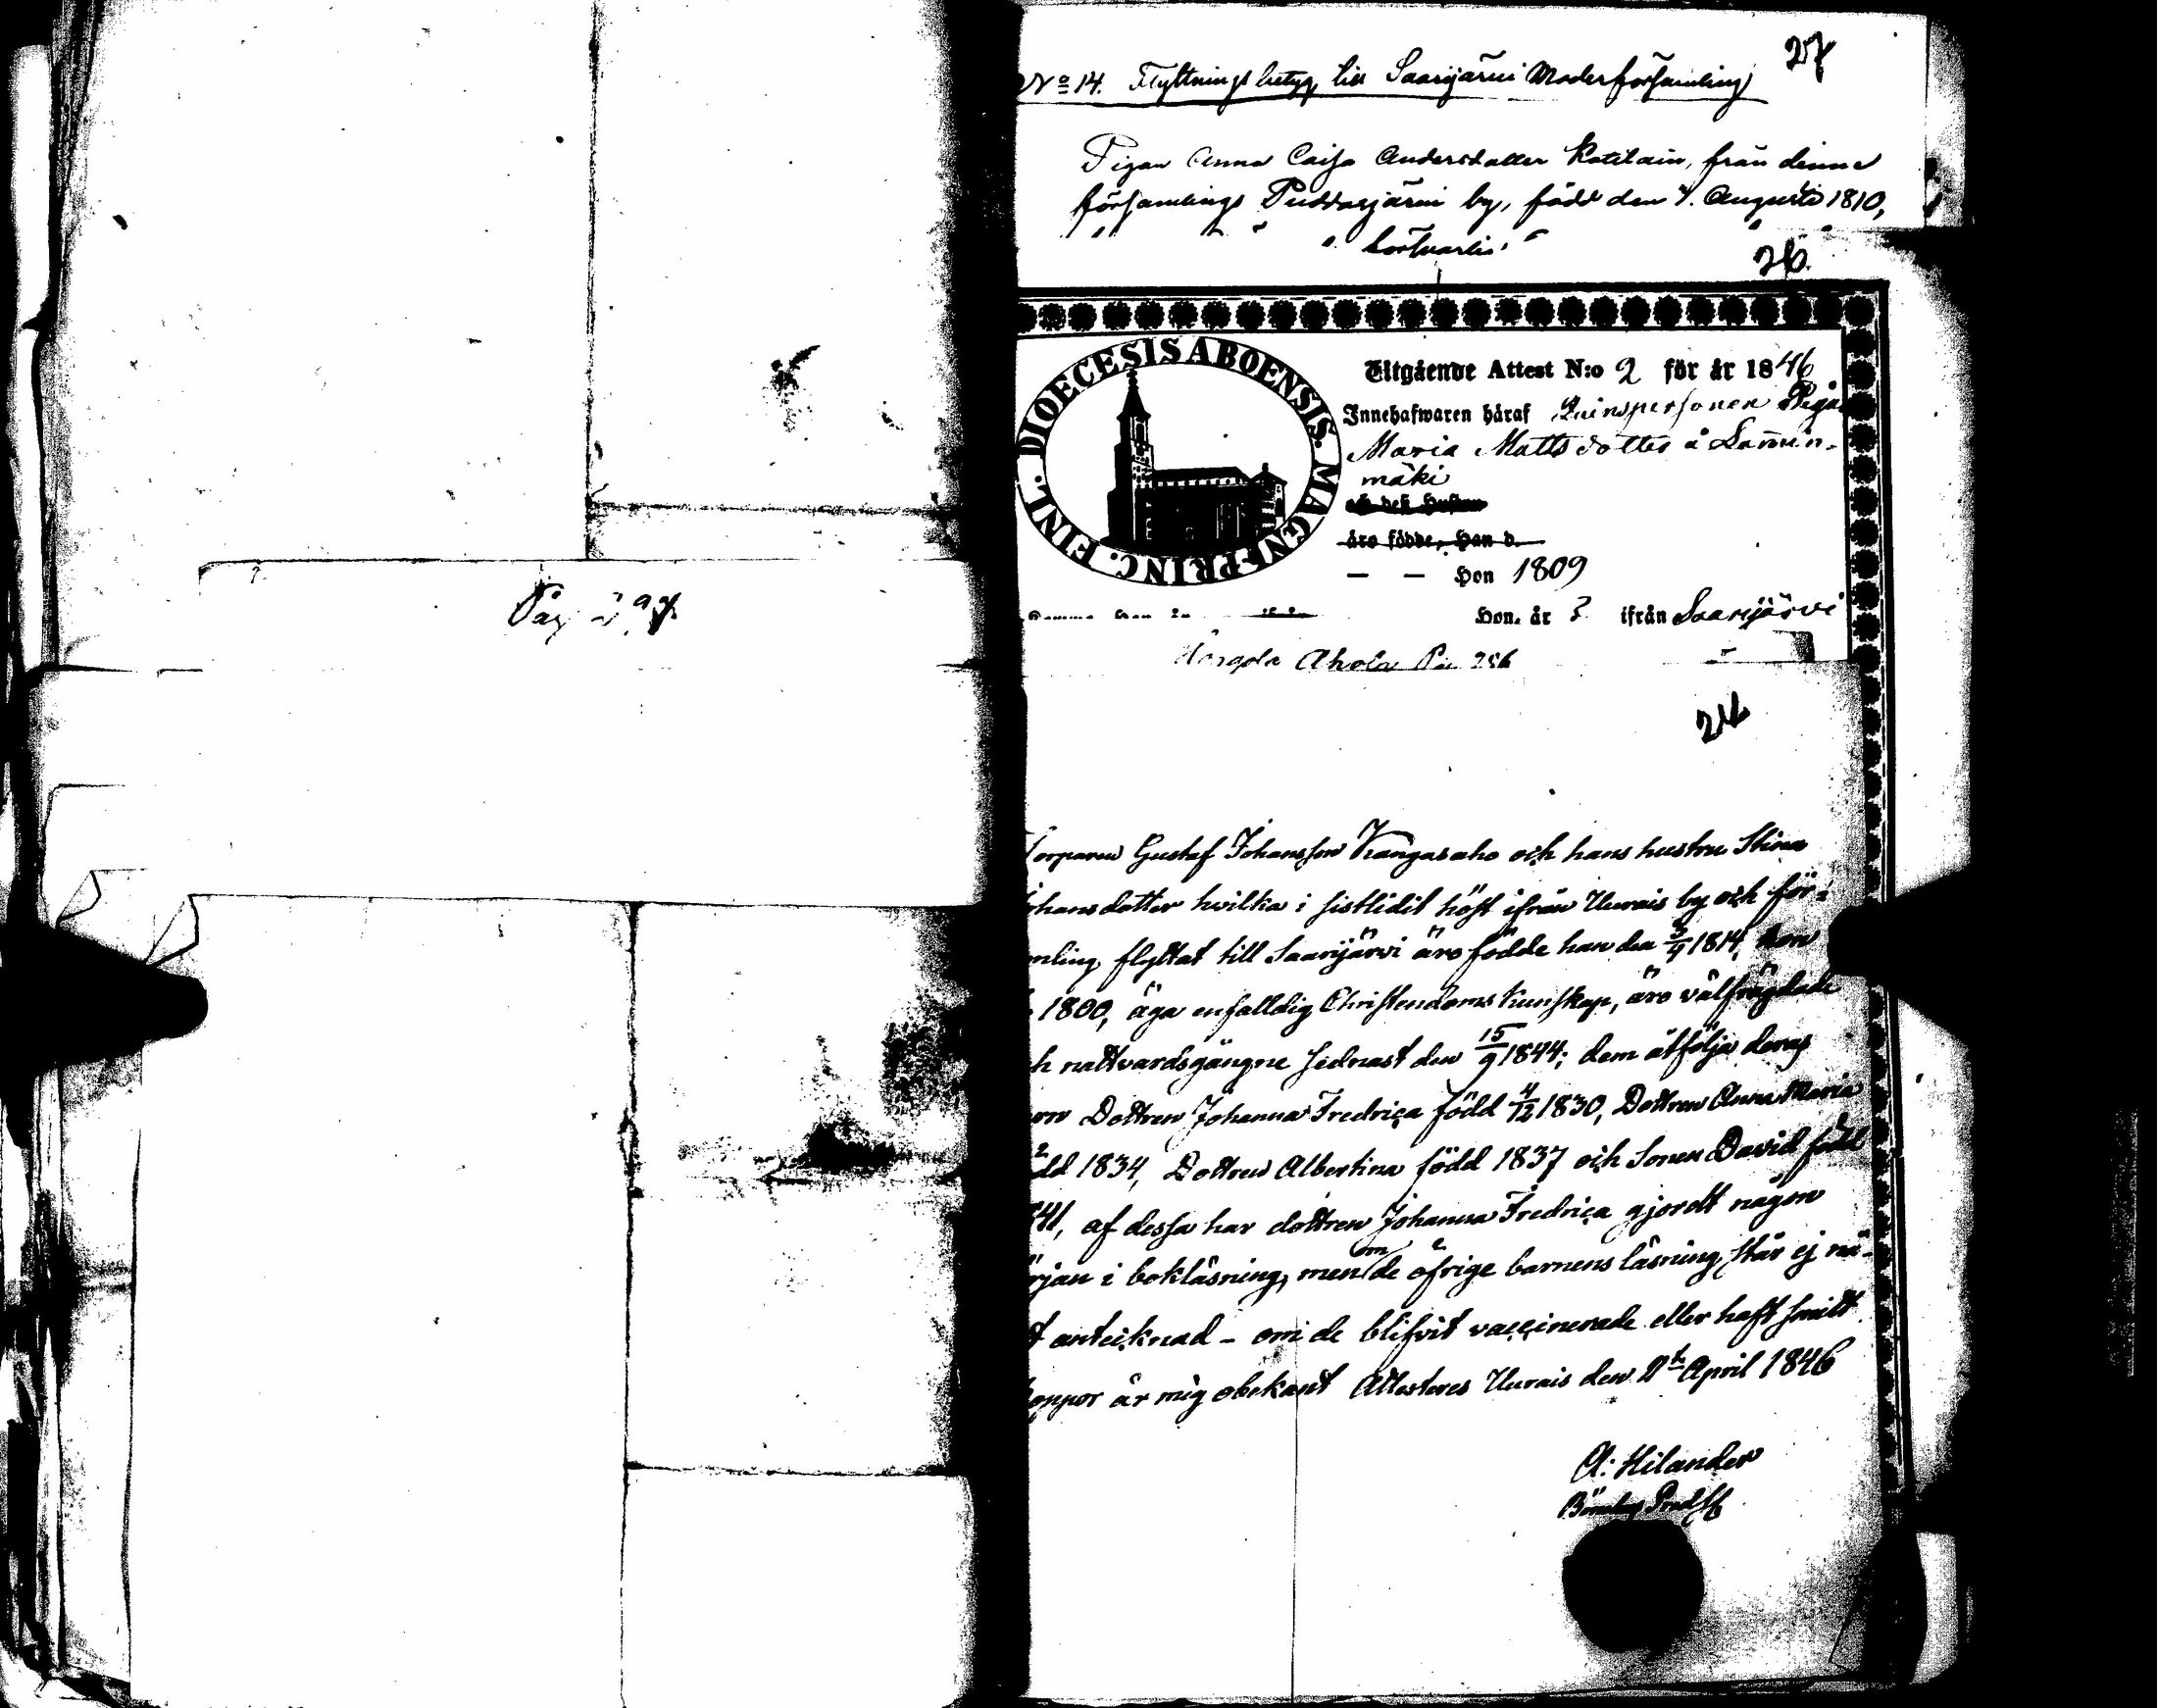 Pag 297.
27
No 14. Flyttnings betyg till Saarijärvi Moderförsamling
Pigan Anna Caisa Andersdotter Kotilain, från denna
församlings Puddasjärvi by, född den 4. Augusti 1810,
26.
DIOECESIS ABOENSIS. MAGN. PRINC. FINL.
Utgående Attest N:o 2 för år 1846
Innehafwaren häraf Qvinspersonen Pigan
Maria Mattsdotter å Lamin-
mäki
och dess Hustru
äro födde, Han d.
— — Hon 1809
Hon. år 3 ifrån Saarijärvi
Ahola
24
Torparen Gustaf Johansson Kangasaho och hans hustru Stina
hansdotter hvilka i sistlidit höst ifrån Uurais by och för-
mling flyttat till Saarijärvi äro födde han den 3/9 1814, hon
1800, äga enfalldig Christendoms kunskap, äro välfrägdade
h nattvardsgångne sednast den 15/9 1844; dem åtfölja deras
rn Dottren Johanna Fredrica född 4/12 1830, Dottren Anna Maria
dd 1834, Dottren Albertina född 1837 och Sonen David född
41, af dessa har dottren Johanna Fredrica gjordt någon
rjan i bokläsning, men om de öfrige barnens läsning står ej nå-
t anteiknad – om de blifvit vaccinerade eller haft smitt
oppor är mig obekant Attesteres Uurais den 2 April 1846
A: Hilander